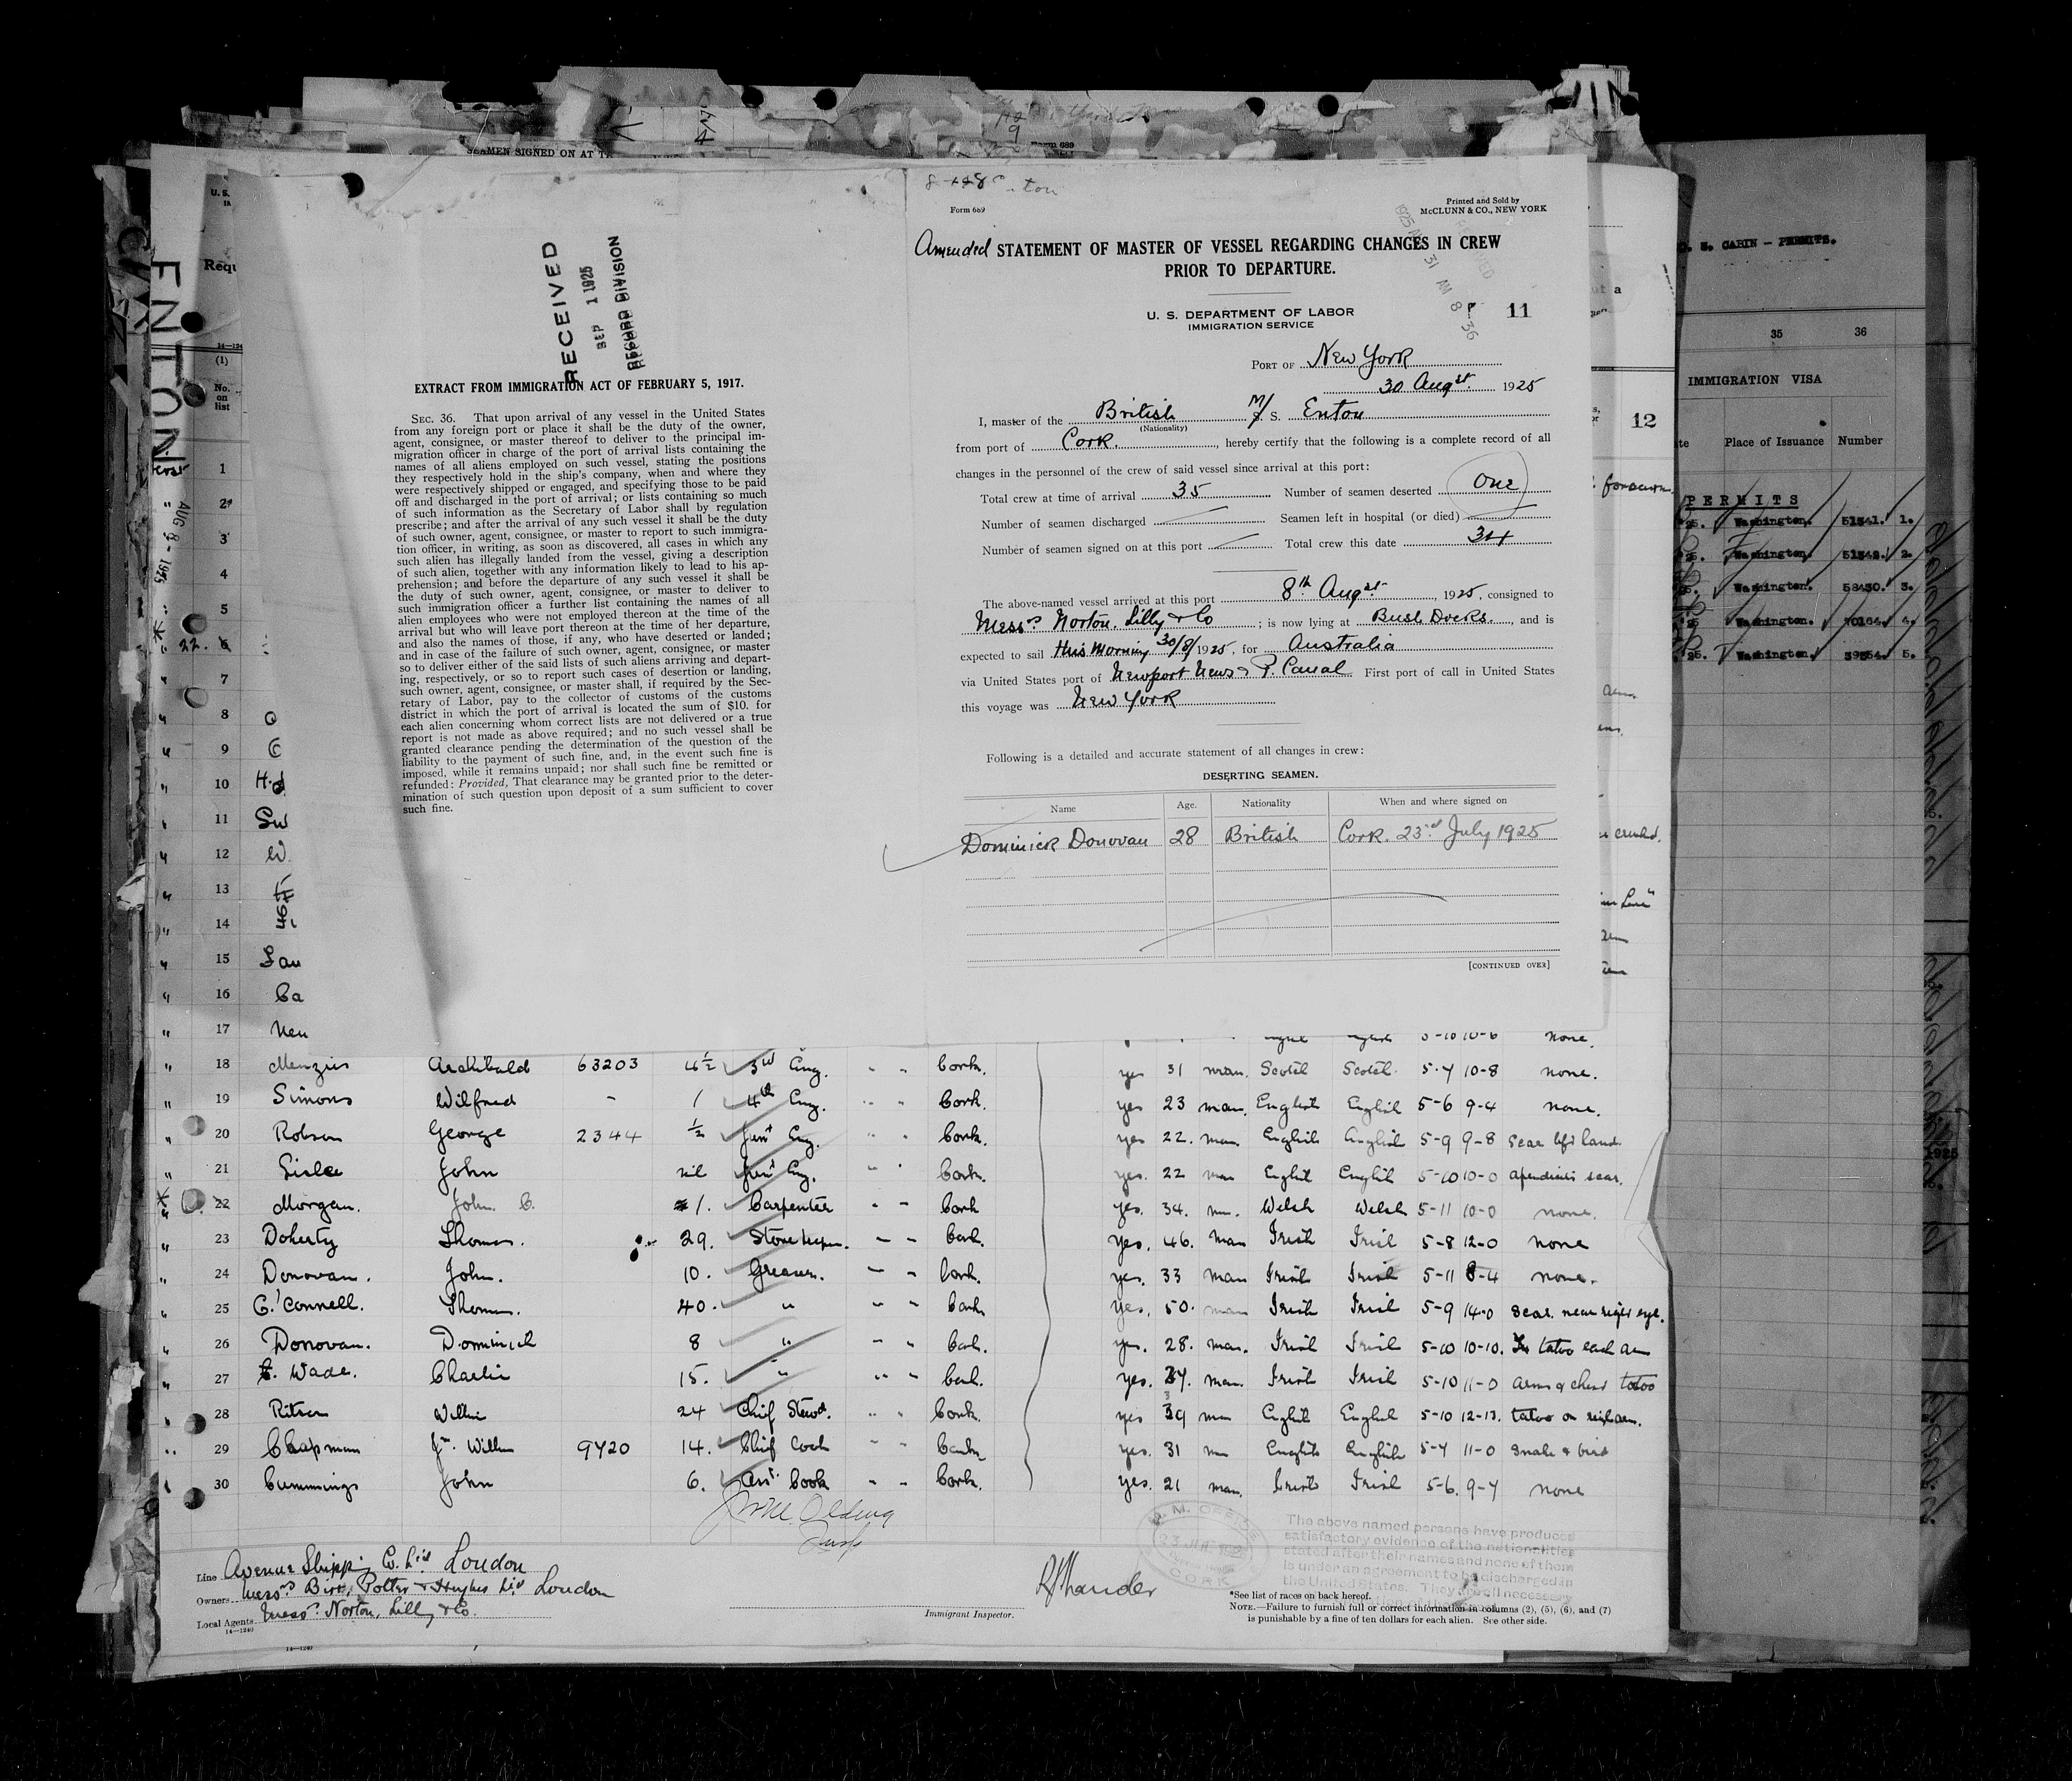 SEAMEN SIGNED ON AT
Form 689
ENTON
U. S.
Requ
14-124
(1)
No.
on
list
RECEIVED
SEP 1 1925
RECORD DIVISION
EXTRACT FROM IMMIGRATION ACT OF FEBRUARY 5, 1917.
SEC. 36. That upon arrival of any vessel in the United States
from any foreign port or place it shall be the duty of the owner,
agent, consignee, or master thereof to deliver to the principal im-
migration officer in charge of the port of arrival lists containing the
names of all aliens employed on such vessel, stating the positions
they respectively hold in the ship's company, when and where they
were respectively shipped or engaged, and specifying those to be paid
off and discharged in the port of arrival; or lists containing so much
of such information as the Secretary of Labor shall by regulation
prescribe; and after the arrival of any such vessel it shall be the duty
of such owner, agent, consignee, or master to report to such immigra-
tion officer, in writing, as soon as discovered, all cases in which any
such alien has illegally landed from the vessel, giving a description
of such alien, together with any information likely to lead to his ap-
prehension; and before the departure of any such vessel it shall be
the duty of such owner, agent, consignee, or master to deliver to
such immigration officer a further list containing the names of all
alien employees who were not employed thereon at the time of the
arrival but who will leave port thereon at the time of her departure,
and also the names of those, if any, who have deserted or landed;
and in case of the failure of such owner, agent, consignee, or master
so to deliver either of the said lists of such aliens arriving and depart-
ing, respectively, or so to report such cases of desertion or landing,
such owner, agent, consignee, or master shall, if required by the Sec-
retary of Labor, pay to the collector of customs of the customs
district in which the port of arrival is located the sum of $10. for
each alien concerning whom correct lists are not delivered or a true
report is not made as above required; and no such vessel shall be
granted clearance pending the determination of the question of the
liability to the payment of such fine, and, in the event such fine is
imposed, while it remains unpaid; nor shall such fine be remitted or
refunded: Provided, That clearance may be granted prior to the deter-
mination of such question upon deposit of a sum sufficient to cover
such fine.
Form 689
Printed and Sold by
McCLUNN & CO., NEW YORK
Amended STATEMENT OF MASTER OF VESSEL REGARDING CHANGES IN CREW
PRIOR TO DEPARTURE.
U. S. DEPARTMENT OF LABOR
IMMIGRATION SERVICE
11
PORT OF New York
30 Augst. 1925
I, master of the British M/S. Enton
(Nationality)
from port of Cork., hereby certify that the following is a complete record of all
changes in the personnel of the crew of said vessel since arrival at this port:
Total crew at time of arrival 35 Number of seamen deserted One
Number of seamen discharged Seamen left in hospital (or died)
Number of seamen signed on at this port Total crew this date 34
The above-named vessel arrived at this port 8th Augst 1925, consigned to
Messrs Norton. Lilly & Co; is now lying at Bush Docks., and is
expected to sail this Morning 30/8/1925, for Australia
via United States port of Newport News & P. Canal First port of call in United States
this voyage was New York
Following is a detailed and accurate statement of all changes in crew:
DESERTING SEAMEN.
Name Age. Nationality When and where signed on
Dominick Donovan 28 British Cork. 23rd July 1925
[CONTINUED OVER]
12
U. S. CABIN — PERMITS.
35 36
IMMIGRATION VISA
Place of Issuance Number
PERMITS
25. Washington. 51341. 1.
Washington. 51342. 2.
Washington. 58430. 3.
25 Washington. 70164. 4.
25. Washington. 39354. 5.
AUG 8 - 1925
1
2
3
4
5
22. 6
7
8
9
10 H.
11 Sw
12 W.
13
14
15 Lau
16 Ca
17 Neu 5-10 10-6 none.
18 Menzies Archibald 63203 4½ 3rd Eng. " " Cork. yes 31 man. Scotch Scotch 5-7 10-8 none.
19 Simons Wilfred - 1 4th Eng. " " Cork. yes 23 man. English English 5-6 9-4 none.
20 Robson George 2344 ½ Junr Eng. " " Cork. yes 22. man English English 5-9 9-8 Scar left hand
21 Lislee John nil Junr Eng. " " Cork. yes. 22 man English English 5-10 10-0 apendicis scar.
22 Morgan. John C. 1. Carpenter " " Cork yes. 34. man. Welsh Welsh 5-11 10-0 none.
23 Doherty Thomas. 29. Storekeeper. " " Cork. yes. 46. man Irish Irish 5-8 12-0 none
24 Donovan. John. 10. Greaser. " " Cork. yes. 33 man Irish Irish 5-11 8-4 none.
25 O'Connell. Thomas. 40. " " " Cork yes. 50. man Irish Irish 5-9 14-0 scar. near right eye.
26 Donovan. Dominick 8 " " " Cork. yes. 28. man. Irish Irish 5-10 10-10. tatoo each arm
27 Wade. Charlie 15. " " " Cork. yes. 37. man. Irish Irish 5-10 11-0 arms & chest tatoo
28 Ritson Willie 24 Chief Stewd. " " Cork. yes 39 man English English 5-10 12-13. tatoo on right arm.
29 Chapman Jn. Willm 9720 14. Chief Cook " " Cork yes. 31 man English English 5-7 11-0 snake & bird
30 Cummings John 6. Asst. Cook " " Cork. yes. 21 man. Irish Irish 5-6. 9-7 none
Line Avenue Shipping Co. Ltd London
Owners Messrs Birt, Potter & Hughes Ltd London
Local Agents Messrs. Norton, Lilly & Co.
14-1240
Immigrant Inspector.
M. M. OFFICE
CORK
The above named persons have produced
satisfactory evidence of the nationalities
stated after their names and none of them
is under an agreement to be discharged in
the United States. They are all necessary
*See list of races on back hereof.
NOTE.—Failure to furnish full or correct information in columns (2), (5), (6), and (7)
is punishable by a fine of ten dollars for each alien. See other side.